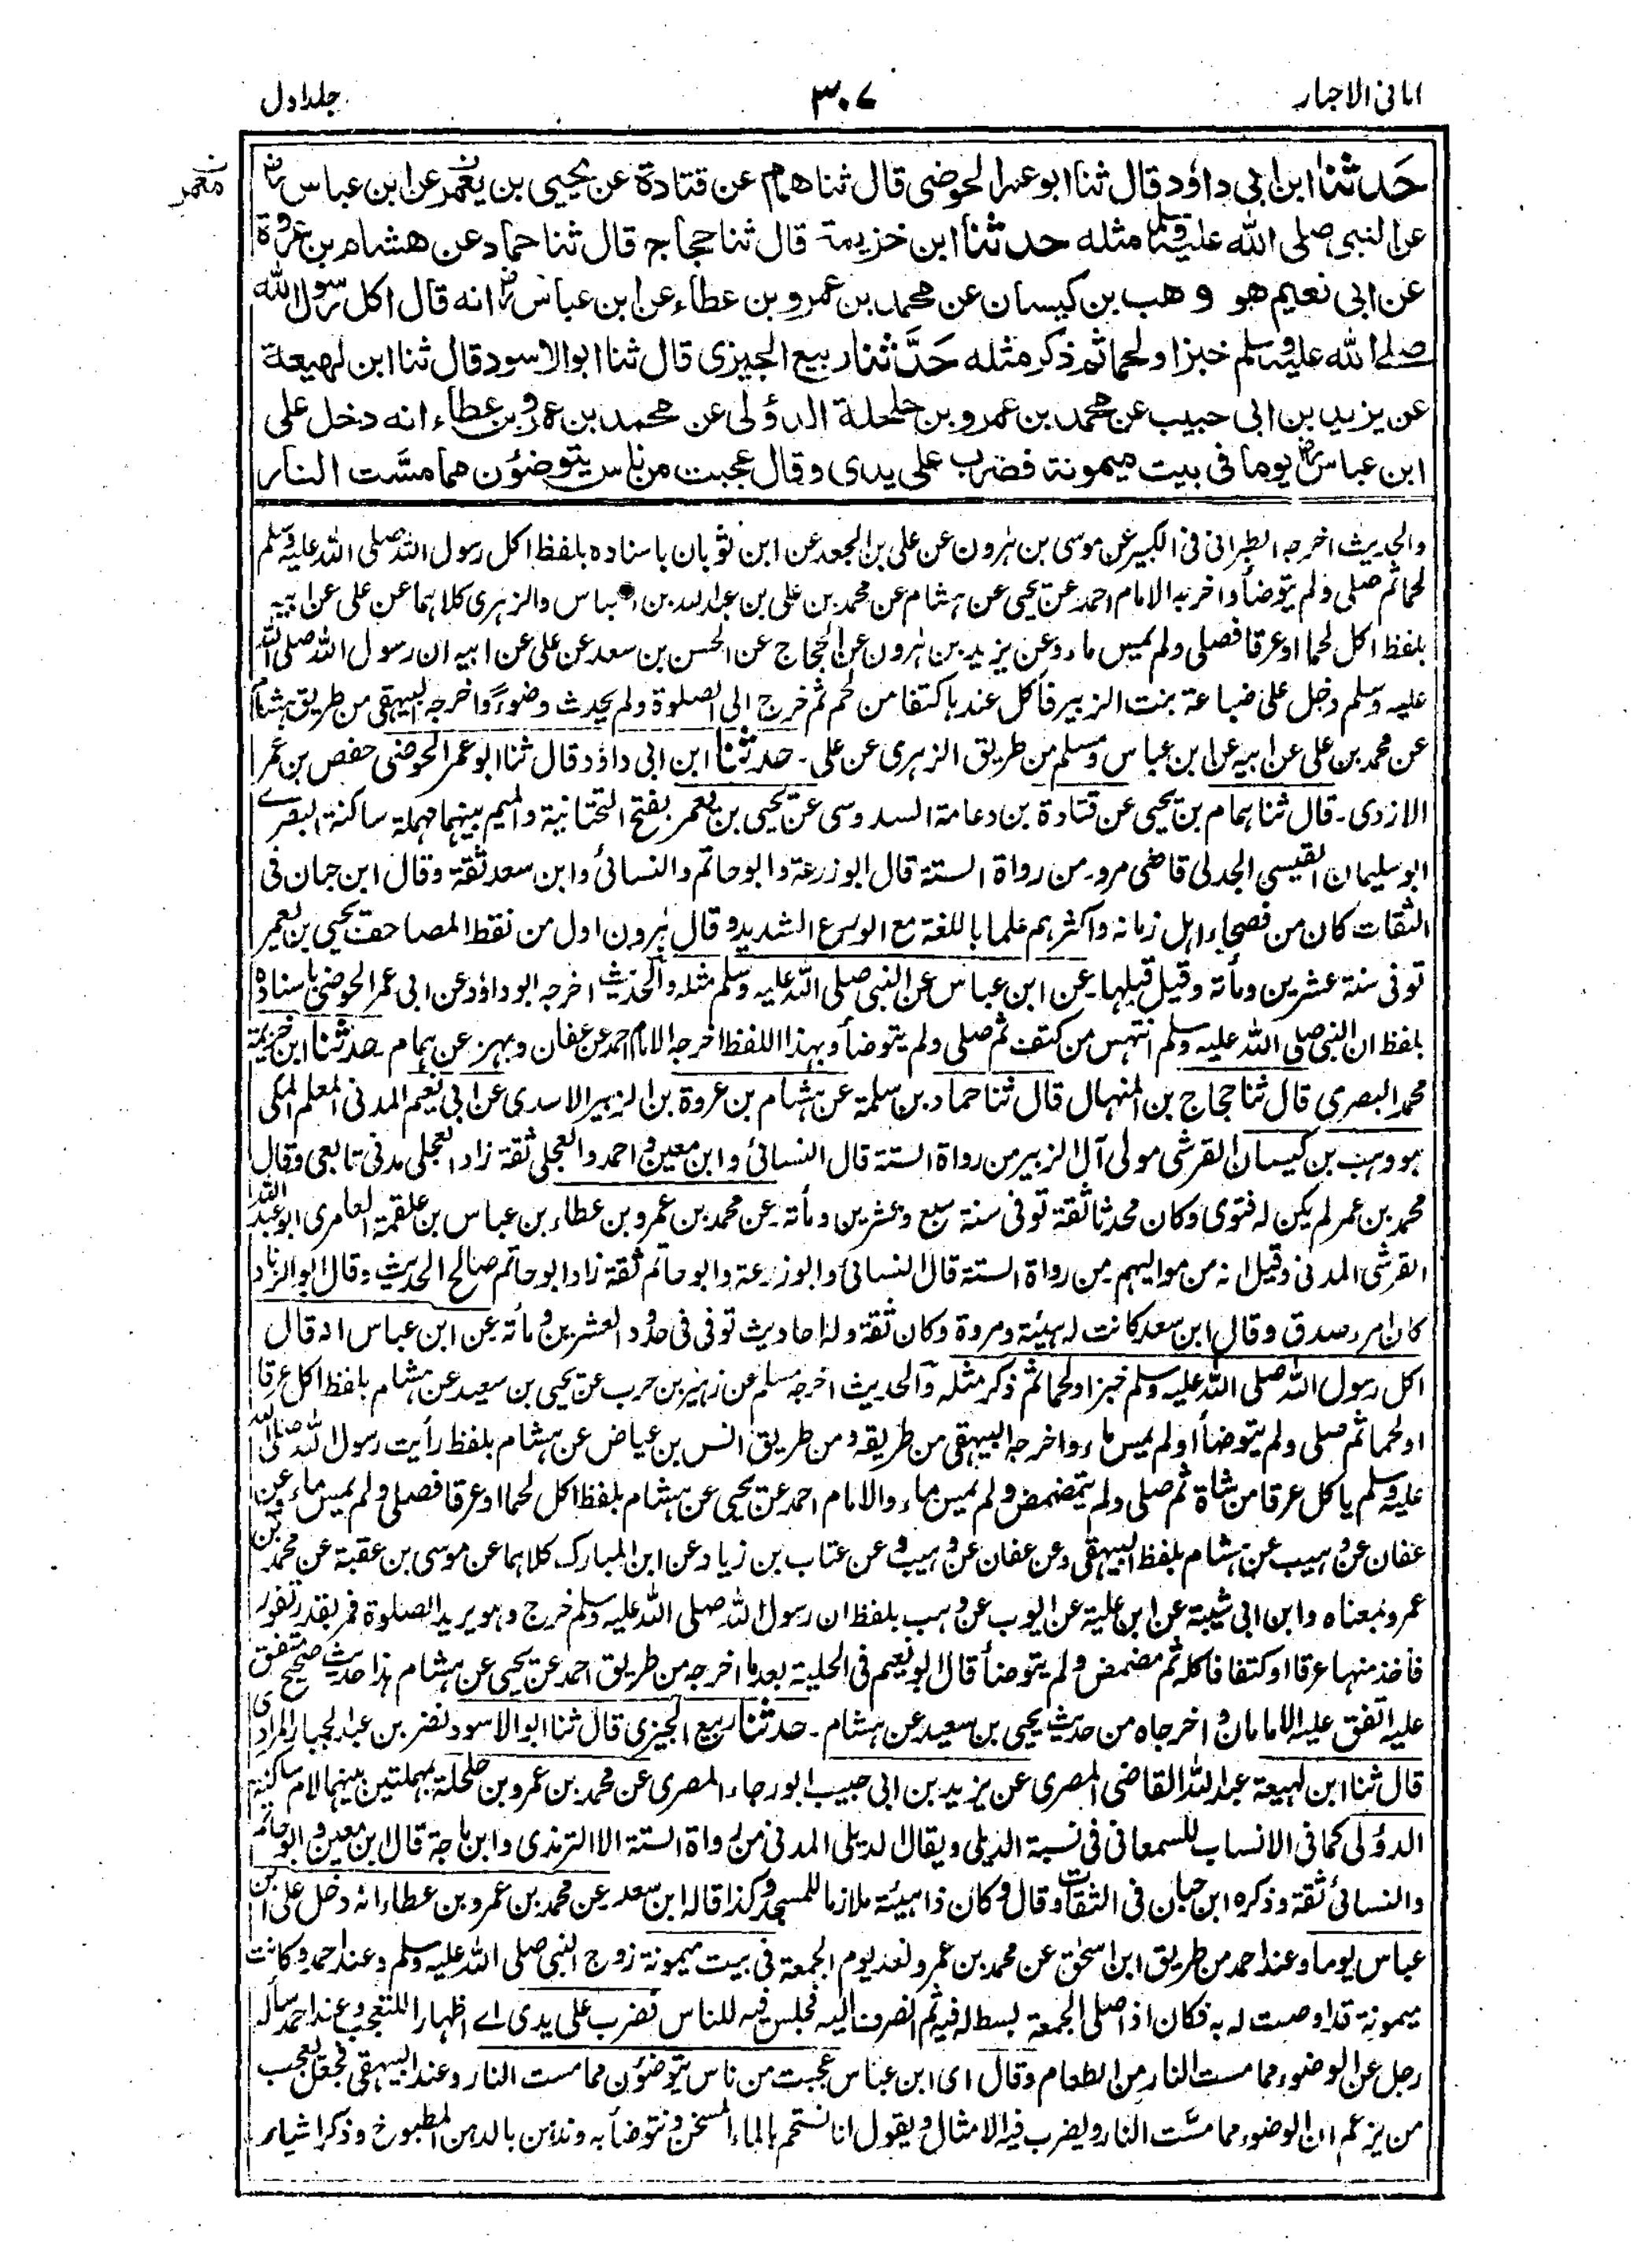 امانی الاحبار
٣٠٧
جلد اول
حدثنا ابن ابی داؤد قال ثنا ابو عمر الحوضی قال ثنا همام عن قتادة عن یحیی بن یعمر عن ابن عباس رض
معمر
عن النبی صلی الله علیه وسلم مثله حدثنا ابن خزیمة قال ثنا حجاج قال ثنا حماد عن هشام بن عروة
عن ابی نعیم هو وهب بن کیسان عن محمد بن عمرو بن عطاء عن ابن عباس رض انه قال اکل رسول الله
صلی الله علیه وسلم خبزا ولحما ثم ذکر مثله حَدَّثنا ربیع الجیزی قال ثنا ابو الاسود قال ثنا ابن لهیعة
عن یزید بن ابی حبیب عن محمد بن عمرو بن حلحلة الدؤلی عن محمد بن عمرو بن عطاء انه دخل علی
ابن عباس رض یوما فی بیت میمونة فضرب علی یدی وقال عجبت من ناس یتوضؤن مما مسَّت النار
والحدیث اخرجه الطبرانی فی الکبیر عن موسی بن ہٰرون عن علی بن الجعد عن ابن ثوبان باسناده بلفظ اکل رسول الله صلی الله علیه وسلم
لحما ثم صلی ولم یتوضأ واخرجه الامام احمد عن یحیی عن ہشام عن محمد بن علی بن عبدالله بن عباس والزہری کلاہما عن علی عن ابیه
بلفظ اکل لحما او عرقا فصلی ولم یمس ماء وعن یزید بن ہٰرون عن الحجاج عن الحسن بن سعد عن علی عن ابیه ان رسول الله صلی الله
علیه وسلم دخل علی ضباعة بنت الزبیر فأکل عندہا کتفا من لحم ثم خرج الی الصلوة ولم یحدث وضوءً واخرجه البیہقی من طریق ہشام
عن محمد بن علی عن ابیه عن ابن عباس ومسلم من طریق الزہری عن علی۔ حدثنا ابن ابی داؤد قال ثنا ابو عمر الحوضی حفص بن عمر
الازدی۔ قال ثنا ہمام بن یحیی عن قتادة بن دعامة السدوسی عن یحیی بن یعمر بفتح التحتانیة والمیم بینہما مہملة ساکنة البصرے
ابو سلیمان القیسی الجدلی قاضی مرو۔ من رواة الستة قال ابو زرعة وابو حاتم والنسائی وابن سعد ثقة وقال ابن حبان فی
الثقات کان من فصحاء اہل زمانه واکثرہم علما باللغة مع الورع الشدید وقال ہٰرون اول من نقط المصاحف یحیی بن یعمر
توفی سنة عشرین ومأته وقیل قبلہا۔ عن ابن عباس عن النبی صلی الله علیه وسلم مثله والحدیث اخرجه ابو داؤد عن ابی عمر الحوضی باسناده
بلفظ ان النبی صلی الله علیه وسلم انتہس من کتف ثم صلی ولم یتوضأ وبہذا اللفظ اخرجه الامام احمد عن عفان وبہز عن ہمام۔ حدثنا ابن خزیمة
محمد البصری قال ثنا حجاج بن المنہال قال ثنا حماد بن سلمة عن ہشام بن عروة بن الزبیر الاسدی عن ابی نعیم المدنی المعلم المکی
ہو وہب بن کیسان القرشی مولی آل الزبیر من رواة الستة قال النسائی وابن معین واحمد والعجلی ثقة زاد العجلی مدنی تابعی وقال
محمد بن عمر لم یکن له فتوی وکان محدثا ثقة توفی سنة سبع وعشرین ومأته۔ عن محمد بن عمرو بن عطاء بن عباس بن علقمة العامری ابو عبد الله
القرشی المدنی وقیل انه من موالیہم من رواة الستة قال النسائی وابو زرعة وابو حاتم ثقة زاد ابو حاتم صالح الحدیث وقال ابو الزناد
کان امرء صدق وقال ابن سعد کانت له ہیئة ومروة وکان ثقة وله احادیث توفی فی حدود العشرین ومأته عن ابن عباس انه قال
اکل رسول الله صلی الله علیه وسلم خبزا ولحما ثم ذکر مثله والحدیث اخرجه مسلم عن زہیر بن حرب عن یحیی بن سعید عن ہشام بلفظ اکل عرقا
او لحما ثم صلی ولم یتوضأ او لم یمس ماء واخرجه البیہقی من طریقه ومن طریق انس بن عیاض عن ہشام بلفظ رأیت رسول الله صلی الله
علیه وسلم یاکل عرقا من شاة ثم صلی ولم یتمضمض ولم یمس ماء والامام احمد عن یحیی عن ہشام بلفظ اکل لحما او عرقا فصلی ولم یمس ماء وعن
عفان عن وہیب عن ہشام بلفظ البیہقی وعن عفان عن وہیب وعن عتاب بن زیاد عن ابن المبارک کلاہما عن موسی بن عقبة عن محمد بن
عمرو بمعناه وابن ابی شیبة عن ابن علیة عن ایوب عن وہب بلفظ ان رسول الله صلی الله علیه وسلم خرج وہو یرید الصلوة فمر بقدر تفور
فأخذ منہا عرقا او کتفا فاکله ثم مضمض ولم یتوضأ قال ابو نعیم فی الحلیة بعد ما اخرجه من طریق احمد عن یحیی عن ہشام ہذا حدیث صحیح متفق
علیه اتفق علیه الامامان واخرجاه من حدیث یحیی بن سعید عن ہشام۔ حدثنا ربیع الجیزی قال ثنا ابو الاسود نضر بن عبد الجبار المرادی
قال ثنا ابن لہیعة عبدالله القاضی المصری عن یزید بن ابی حبیب ابو رجاء المصری عن محمد بن عمرو بن حلحلة بمہملتین بینہما لام ساکنة
الدؤلی کما فی الانساب للسمعانی فی نسبة الدیلی ویقال الدیلی المدنی من رواة الستة الا الترمذی وابن ماجة قال ابن معین وابو حاتم
والنسائی ثقة وذکره ابن حبان فی الثقات وقال وکان ذا ہیئة ملازما للمسجد وکذا قاله ابن سعد عن محمد بن عمرو بن عطاء انه دخل علی ابن
عباس یوما وعند احمد من طریق ابن اسحٰق عن محمد بن عمرو لغد یوم الجمعة فی بیت میمونة زوج النبی صلی الله علیه وسلم وعند احمد وکانت
میمونة قد اوصت له به فکان اذا صلی الجمعة بسط له فیه ثم انصرف الیه فجلس فیه للناس فضرب علی یدی اے اظہارا للتعجب وعند احمد سأله
رجل عن الوضوء مما مست النار من الطعام وقال ای ابن عباس عجبت من ناس یتوضؤن مما مست النار وعند البیہقی فجعل یعجب
من یزعم ان الوضوء مما مسَّت النار ویضرب فیه الامثال ویقول انا نستحم بالماء المسخن ونتوضأ به وندہن بالدہن المطبوخ وذکر اشیاء